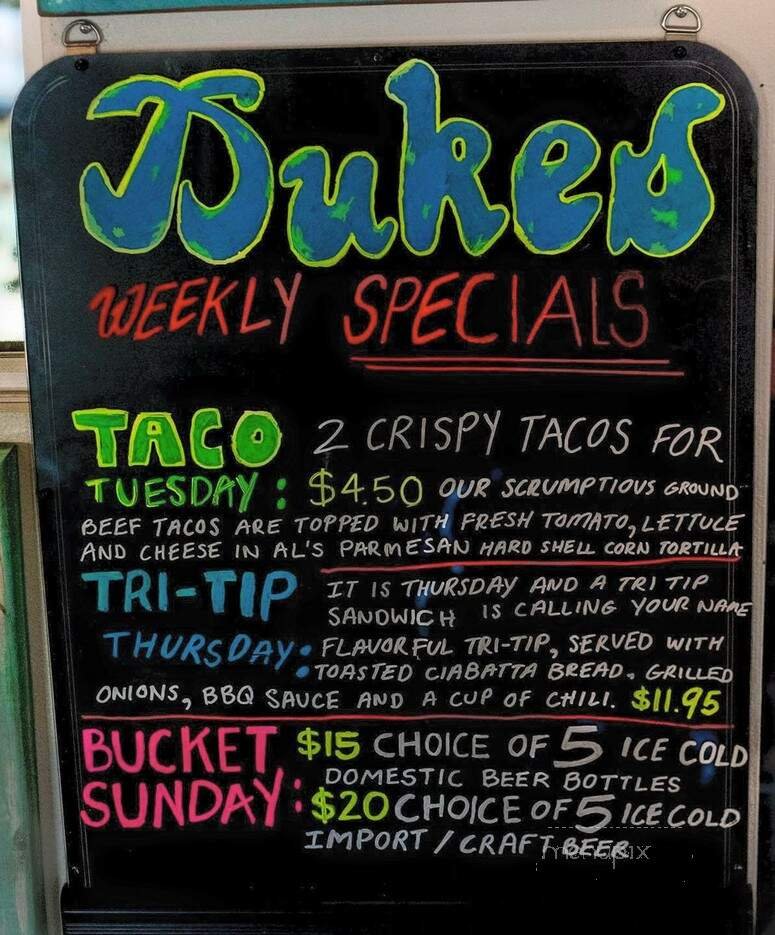 Dukes
WEEKLY SPECIALS
TACO 2 CRISPY TACOS FOR
TUESDAY: $4.50 OUR SCRUMPTIOUS GROUND
BEEF TACOS ARE TOPPED WITH FRESH TOMATO, LETTUCE
AND CHEESE IN AL'S PARMESAN HARD SHELL CORN TORTILLA
TRI-TIP IT IS THURSDAY AND A TRI TIP
SANDWICH IS CALLING YOUR NAME
THURSDAY: FLAVORFUL TRI-TIP, SERVED WITH
TOASTED CIABATTA BREAD. GRILLED
ONIONS, BBQ SAUCE AND A CUP OF CHILI. $11.95
BUCKET $15 CHOICE OF 5 ICE COLD
DOMESTIC BEER BOTTLES
SUNDAY: $20 CHOICE OF 5 ICE COLD
IMPORT / CRAFT BEER
menupix